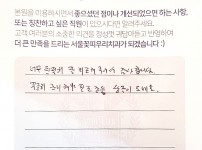 본원을 이용하시면서 좋으셨던 점이나 개선되었으면 하는 사항,
또는 칭찬하고 싶은 직원이 있으시다면 알려주세요.
고객 여러분의 소중한 의견을 정성껏 귀담아듣고 반영하여
더 큰 만족을 드리는 서울꽃피우리치과가 되겠습니다 :)
너무 친절하고 잘 치료해 주셔서 감사합니다.